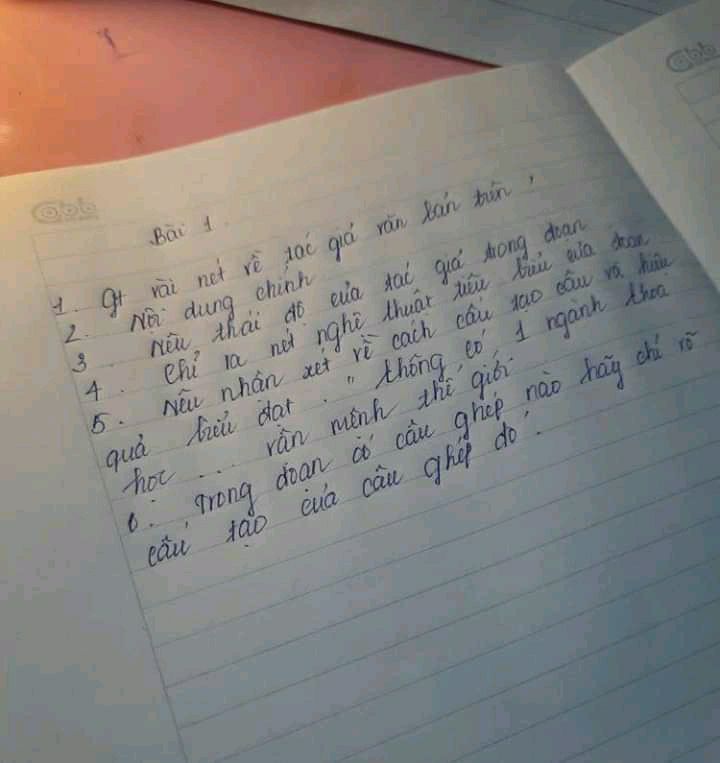 abb
abb
Bài 1
1. Gt vài nét về tác giả văn bản trên,
2. Nội dung chính
3. Nêu thái độ của tác giả trong đoạn
4. Chỉ ra nét nghệ thuật tiêu biểu của đoạn
5. Nêu nhận xét về cách cấu tạo câu và hiệu
quả biểu đạt. "thông có, 1 ngành khoa
học ... vận mệnh thế giới
6. Trong đoạn có câu ghép nào hãy chỉ rõ
cấu tạo của câu ghép đó.